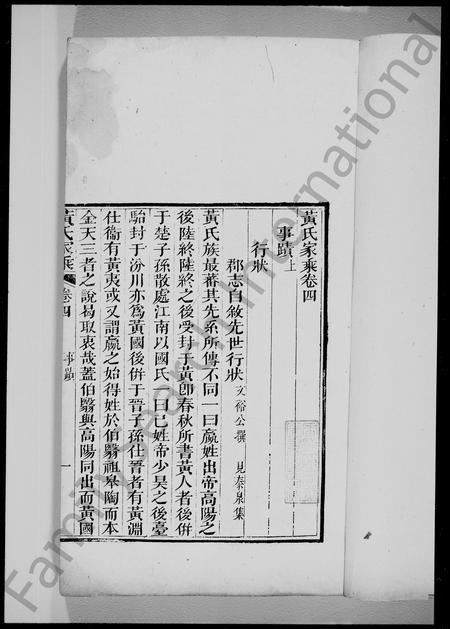 黃氏家乘卷四
事蹟上
行狀
郡志自敘先世行狀 文裕公撰 見泰泉集
黃氏族最蕃其先系所傳不同一曰嬴姓出帝高陽之
後陸終陸終之後受封于黃卽春秋所書黃人者後併
于楚子孫散處江南以國氏一曰己姓帝少昊之後臺
駘封于汾川亦爲黃國後併于晉子孫仕晉者有黃淵
仕衞有黃夷或又謂嬴之始得姓於伯翳祖皋陶而本
金天三者之說曷取衷哉蓋伯翳與高陽同出而黃國
黃氏家乘 卷四 事蹟 一
FamilySearch International